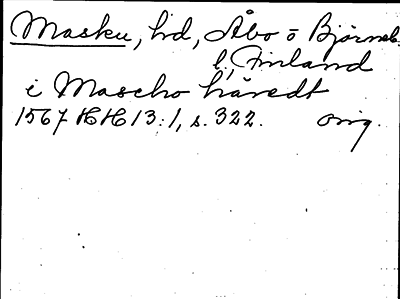 Masku, hd, Åbo o Björneb.
l., Finland
i Mascho häredt
1567 HH 13:1, s. 322. orig.